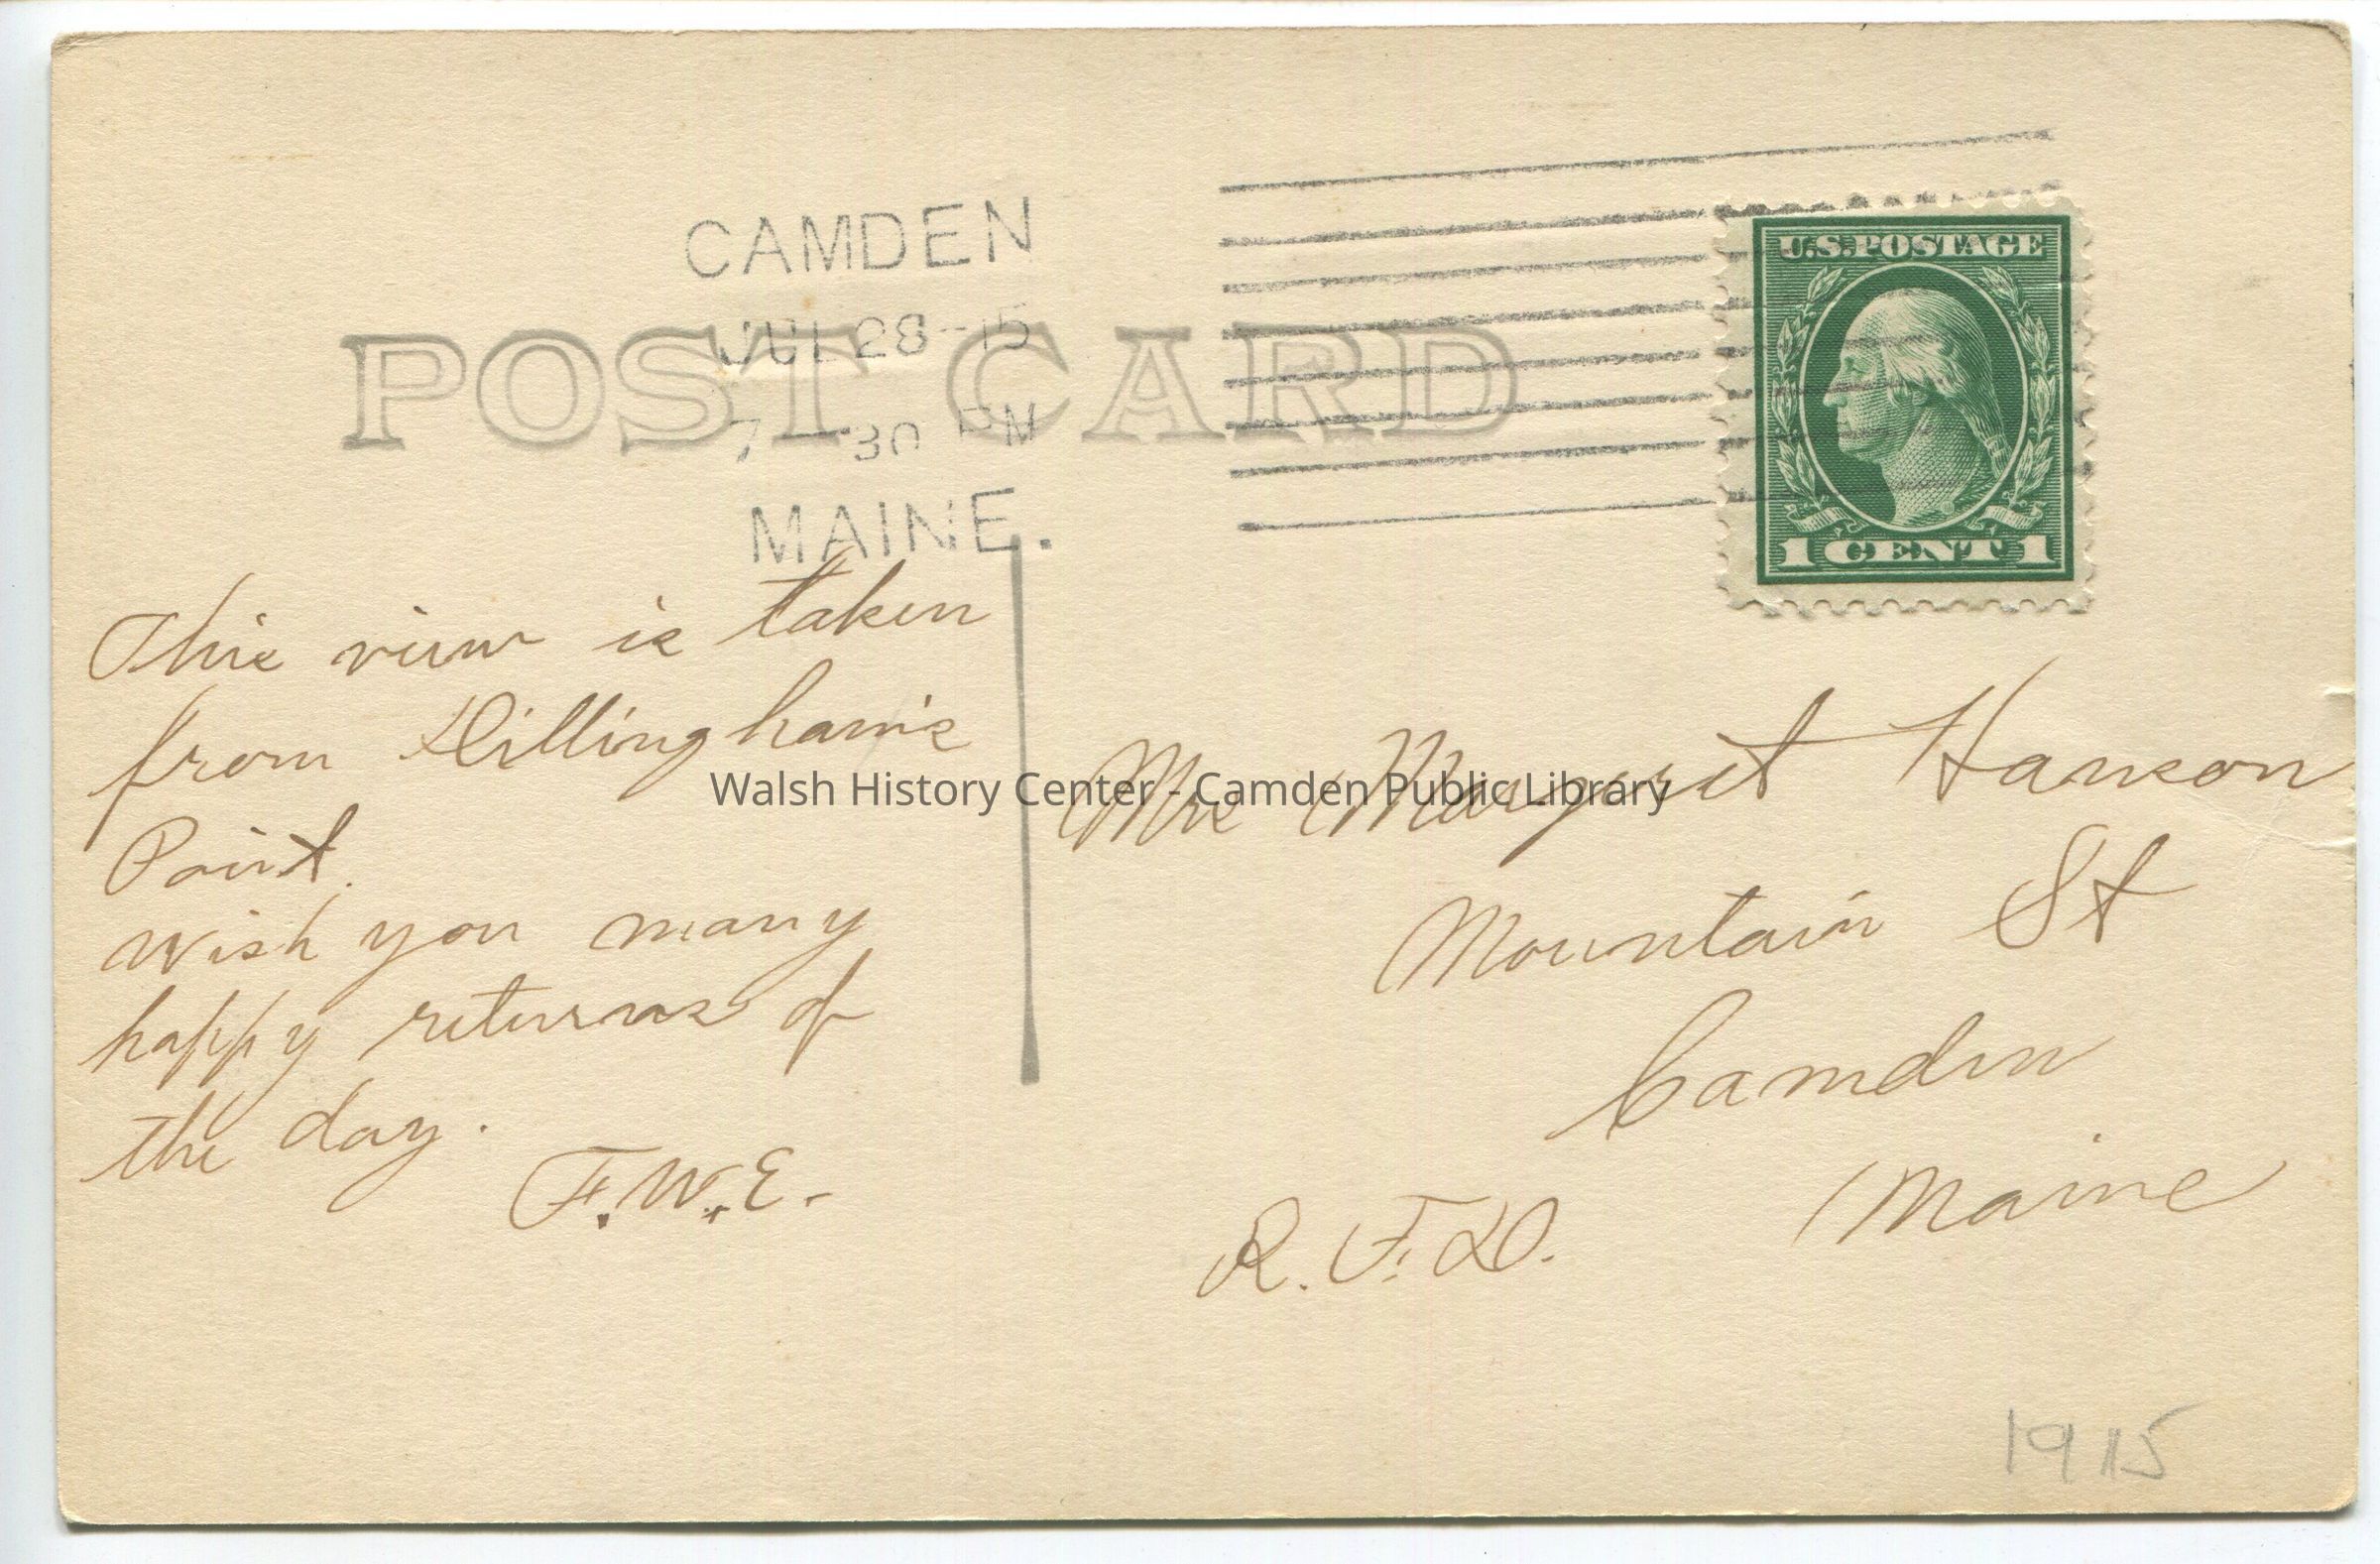 CAMDEN
JUL 28-15
7-30 PM
MAINE.
POST CARD
U.S. POSTAGE
1 CENT 1
This view is taken
from Dillingham's
Point.
Wish you many
happy returns of
the day.
F.W.E.-
Mrs Margaret Hanson
Mountain St
Camden
Maine
R.F.D.
1915
Walsh History Center - Camden Public Library